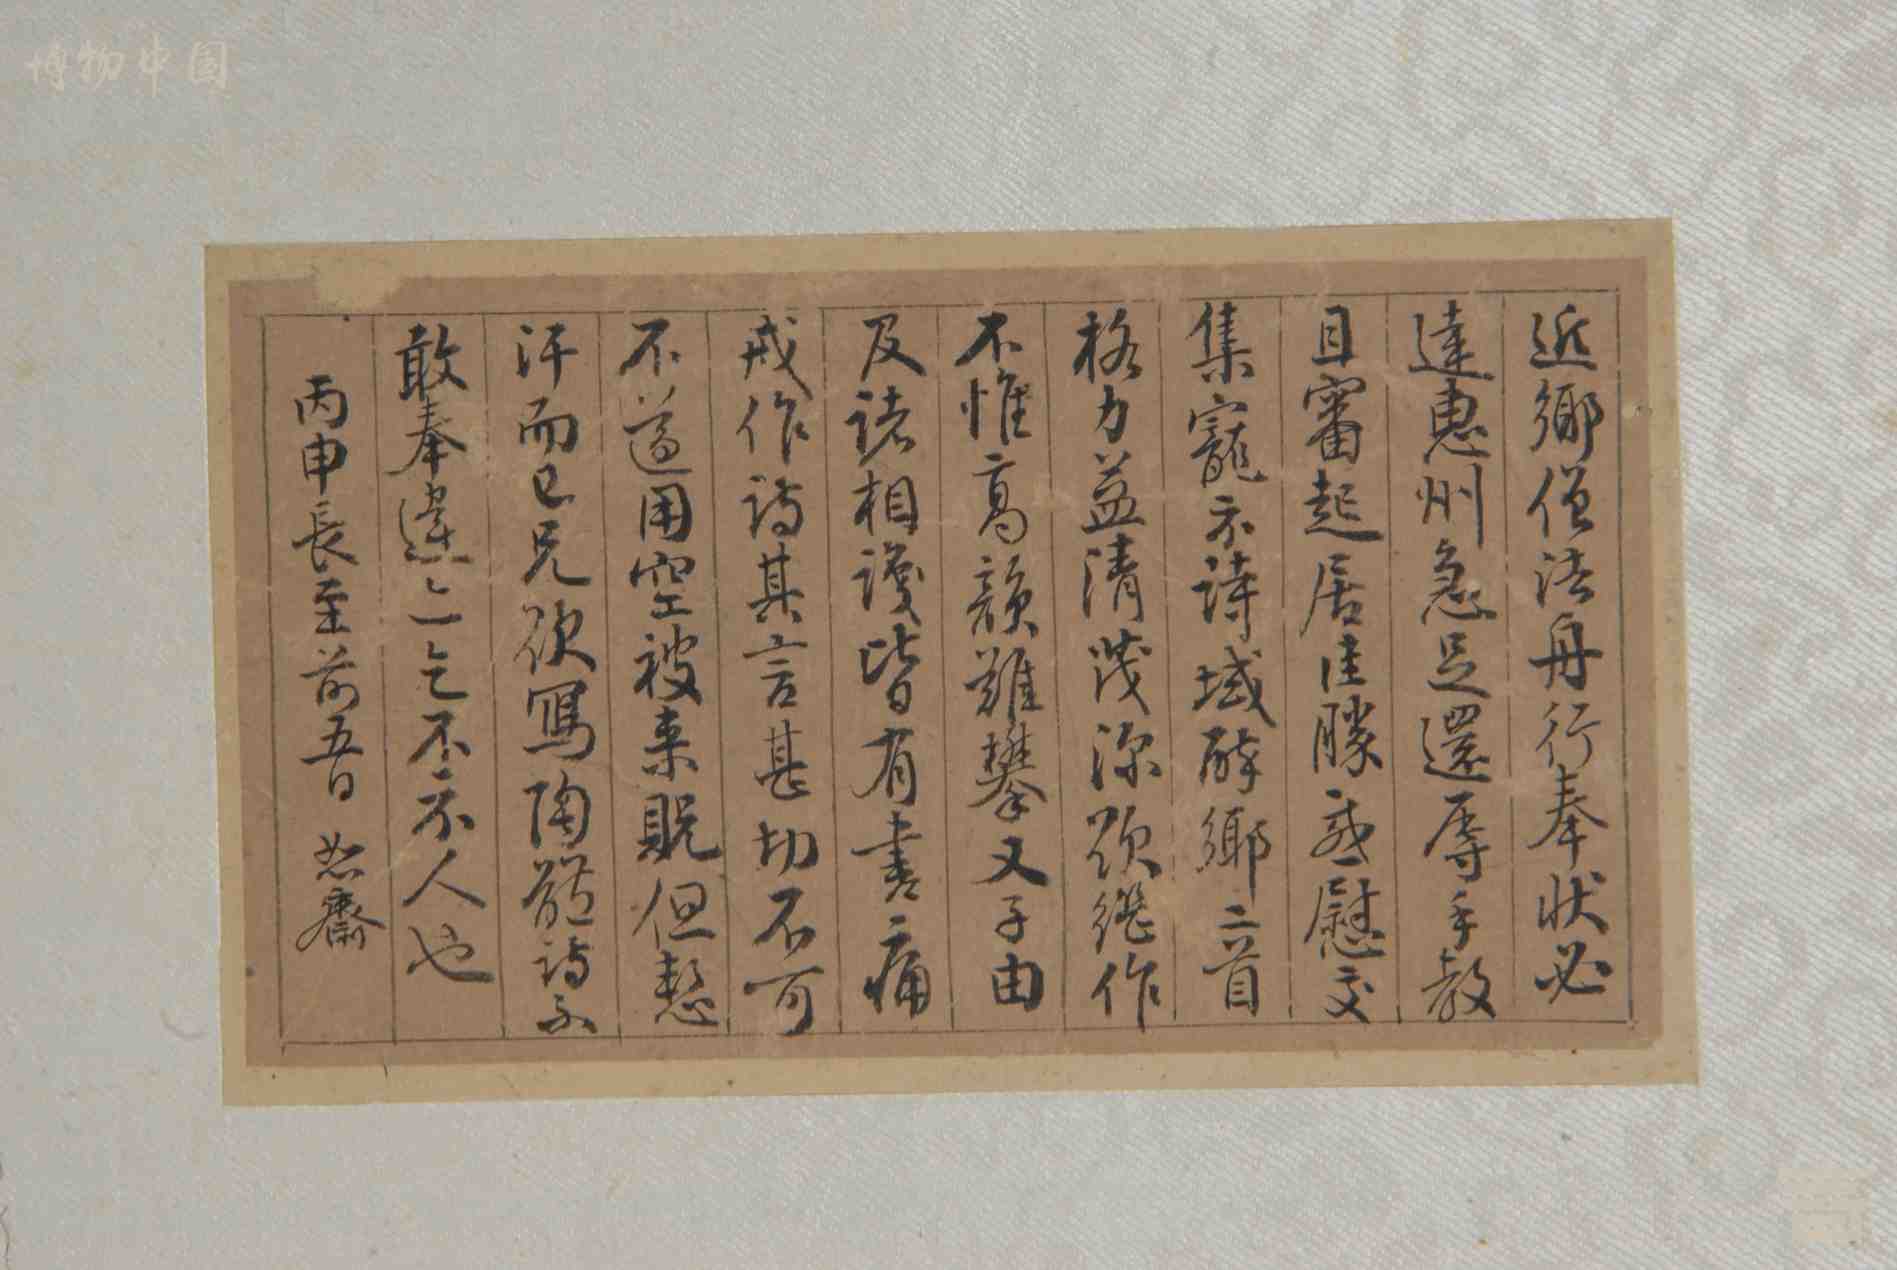 博物中国
近鄉僧法舟行奉狀必
達惠州急足還辱手教
且審起居佳勝感慰交
集寵示詩域醉鄉二首
格力益清茂深欲繼作
不惟高韻難攀又子由
及諸相識皆有書痛
戒作詩其言甚切不可
不遵用空被來貺但慙
汗而已兄欲寫陶體詩不
敢奉違今亡不示人也
丙申長至前五日 恕齋